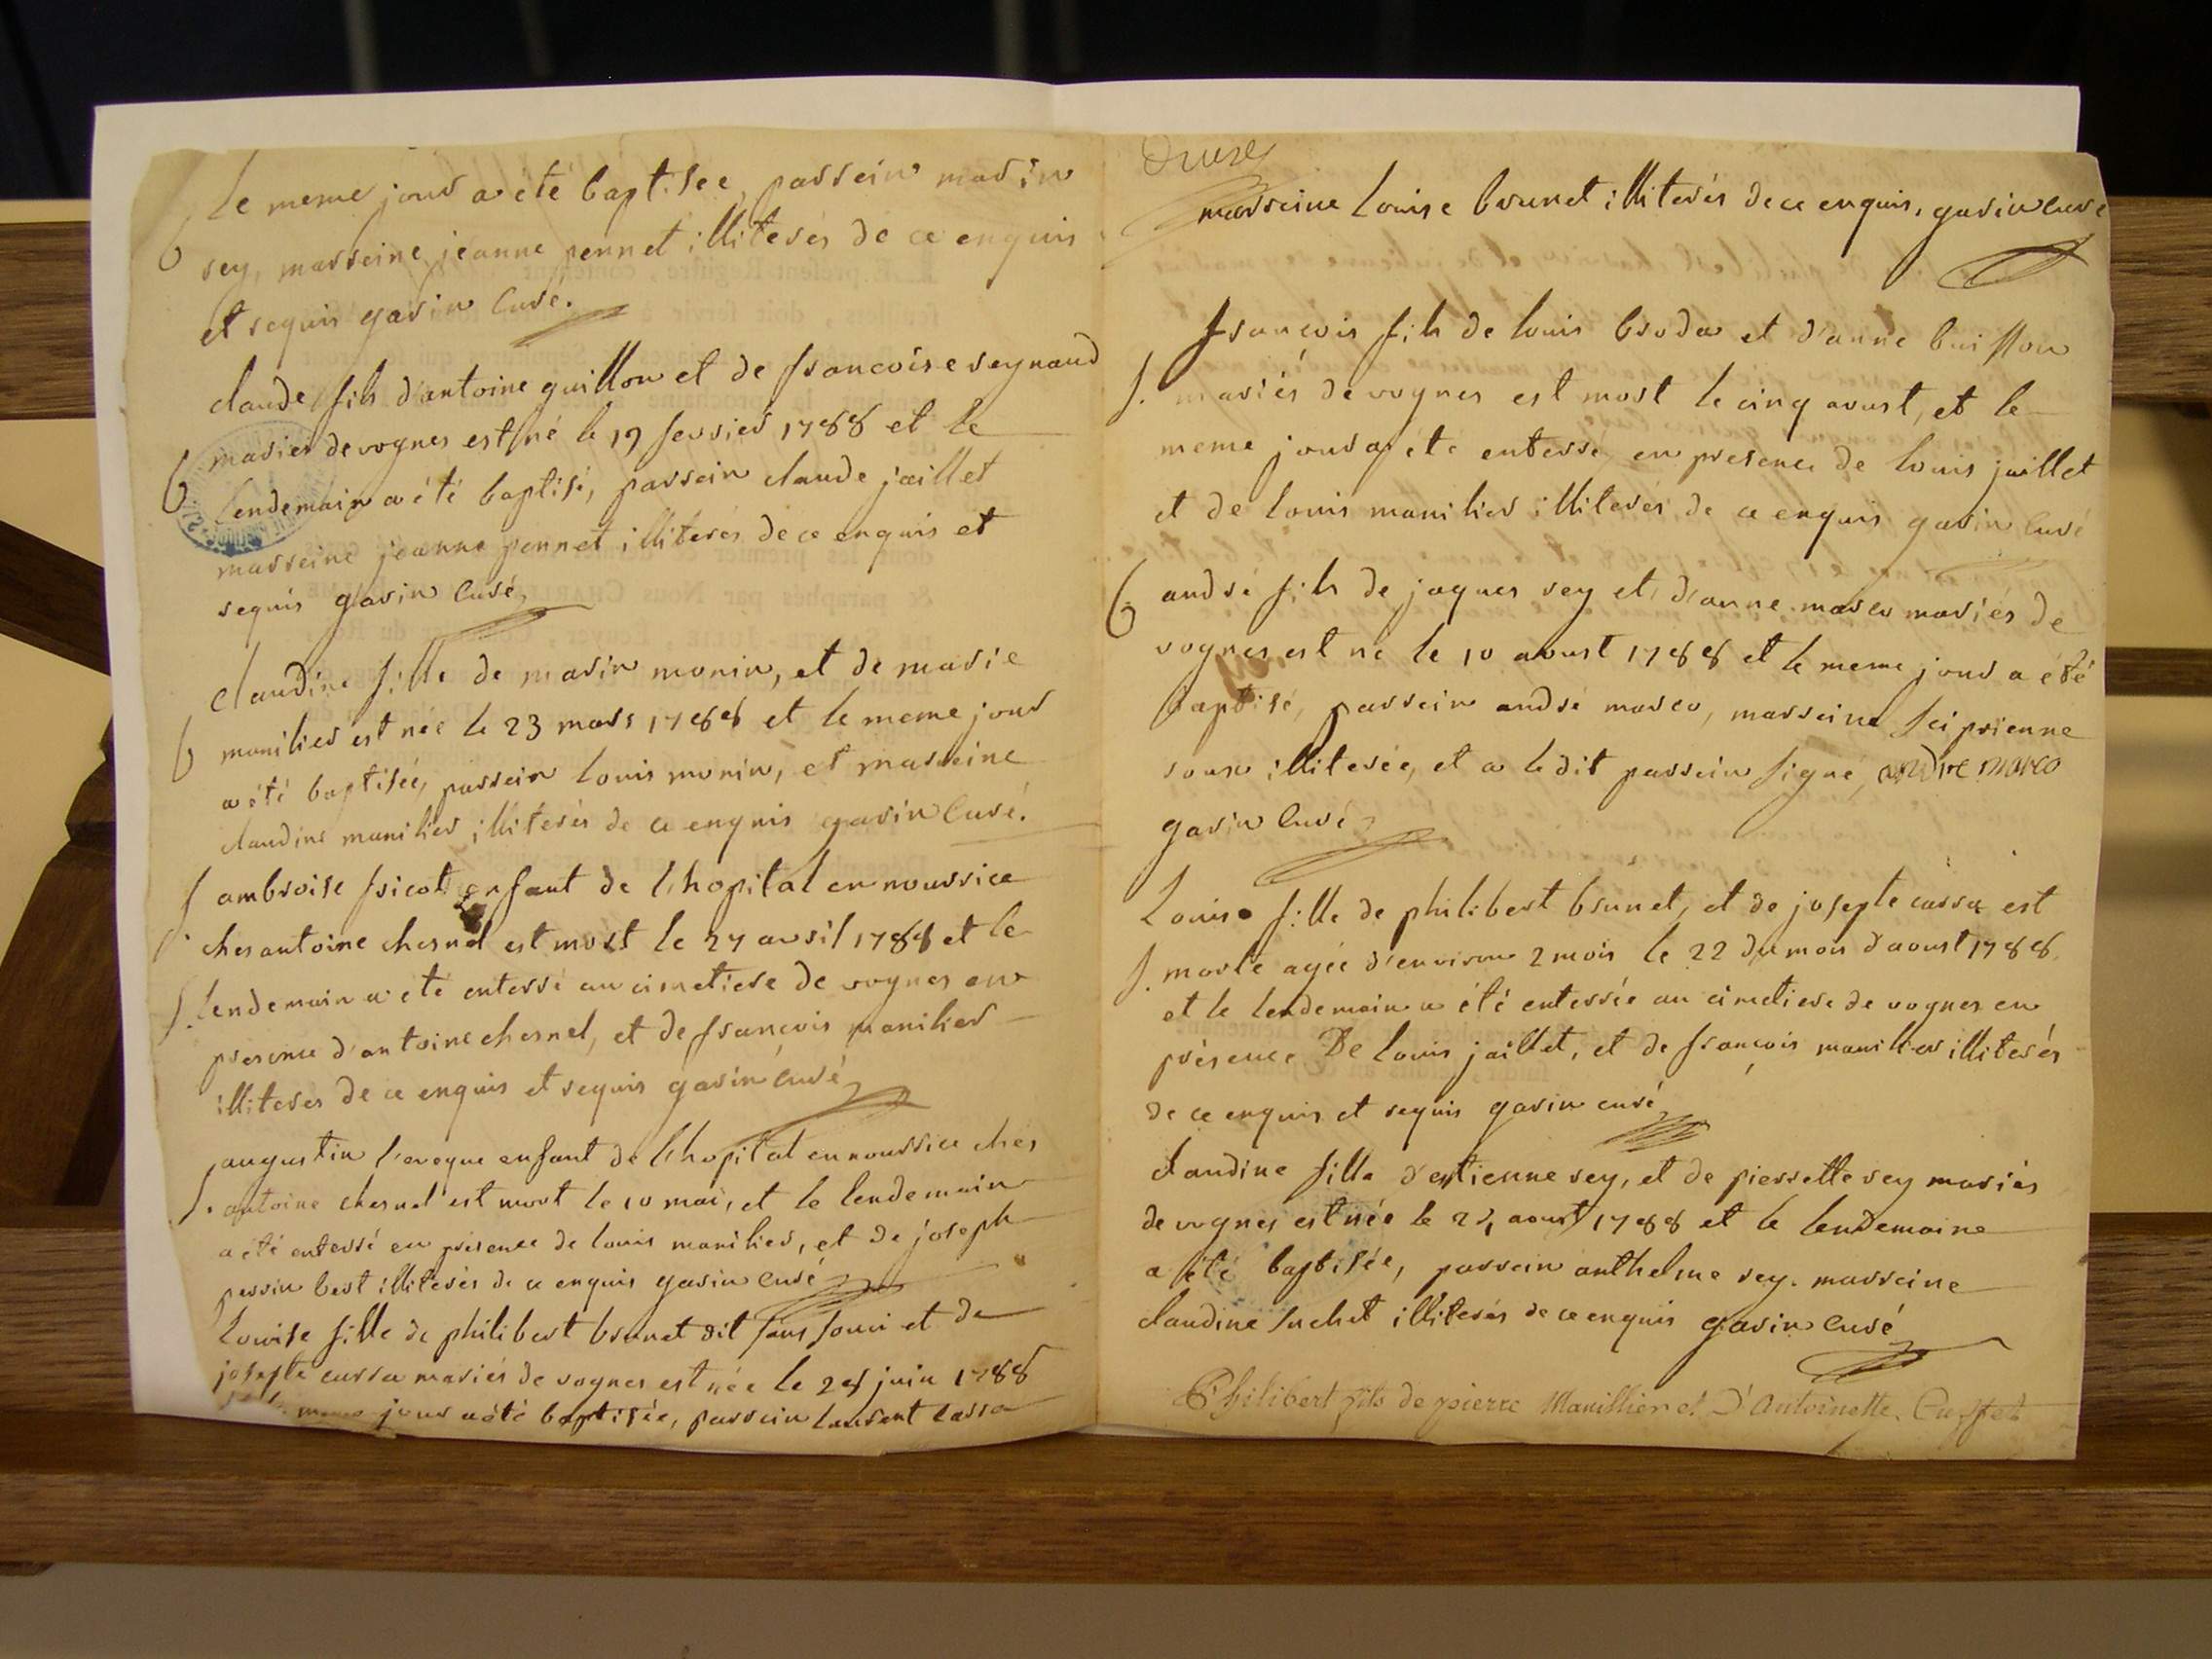 Le meme jour a été baptisée, parrein marin
b rey, marreine jeanne pennet illiterés de ce enquis
et requis garin Curé.
claude fils d'antoine guillon et de francoise reynaud
b mariés de vognes est né le 19 fevrier 1788 et le
lendemain a été baptisé, parrein claude jaillet
marreine jeanne pennet illiterés de ce enquis et
requis garin Curé
claudine fille de marin monin, et de marie
b manilier est née le 23 mars 1788 et le meme jour
a été baptisée, parrein louis monin, et marreine
claudine manilier illiterés de ce enquis garin Curé.
S ambroise fricot enfant de l'hopital en nourrice
ches antoine chesnel est mort le 27 avril 1788 et le
S. lendemain a été enterré au cimetiere de vognes en
presence d'antoine chesnel, et de françois manilier
illiteres de ce enquis et requis garin curé
augustin l'eveque enfant de l'hopital en nourrice ches
S. antoine chesnel est mort le 10 mai, et le lendemain
a été enterré en presence de louis manilier, et de joseph
perrin bert illiterés de ce enquis garin curé
Louise fille de philibert brunet dit sans souci et de
josepte carra mariés de vognes est née le 28 juin 1788
jour a été baptisée, parrein laurent carra
marreine Louise brunet illiterés de ce enquis, garin curé
françois fils de louis broda et d'anne buisson
S. mariés de vognes est mort le cinq aoust, et le
meme jour a été enterré en presence de louis jaillet
et de louis manilier illiterés de ce enquis garin Curé
b andré fils de jaques rey et d'anne marco mariés de
vognes est né le 10 aoust 1788 et le meme jour a été
baptisé, parrein andré marco, marreine siprienne
roux illiterée, et a le dit parrein signé, andre marco
garin Curé
Louise fille de philibert brunet, et de josepte carra est
S. morte agée d'environ 2 mois le 22 du mois d'aoust 1788
et le lendemain a été enterrée au cimetiere de vognes en
présence De louis jaillet, et de françois manilier illiterés
de ce enquis et requis garin curé
claudine fille d'estienne rey, et de pierrette rey mariés
de vognes est née le aoust 1788 et le lendemaine
a été baptisée, parrein anthelme rey. marreine
claudine suchet illiterés de ce enquis garin Curé
Philibert fils de pierre Manillier et D'Antoinette